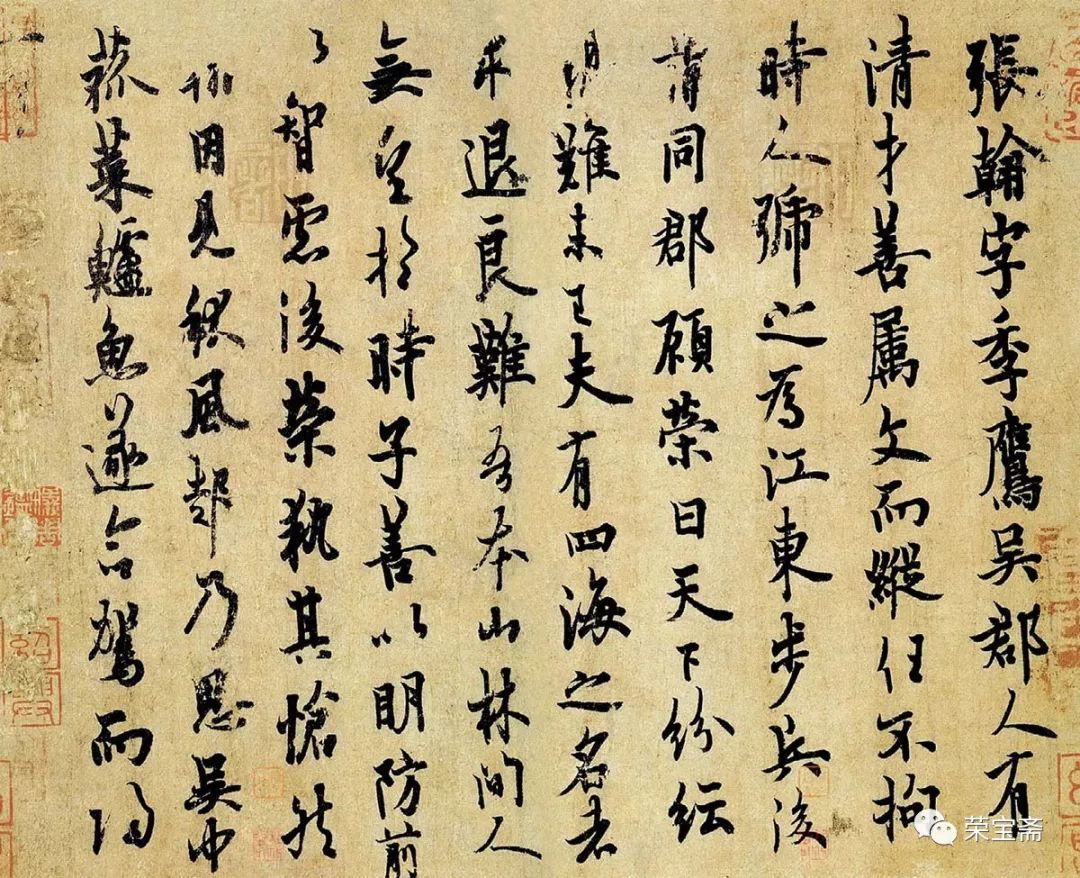 張翰字季鷹吳郡人有
清才善屬文而縱任不拘
時人號之為江東步兵後
謂同郡顧榮曰天下紛紜
禍難未已夫有四海之名者
求退良難吾本山林間人
無望於時子善以明防前
以智慮後榮執其愴然
翰因見秋風起乃思吳中
菰菜鱸魚遂命駕而歸
荣宝斋